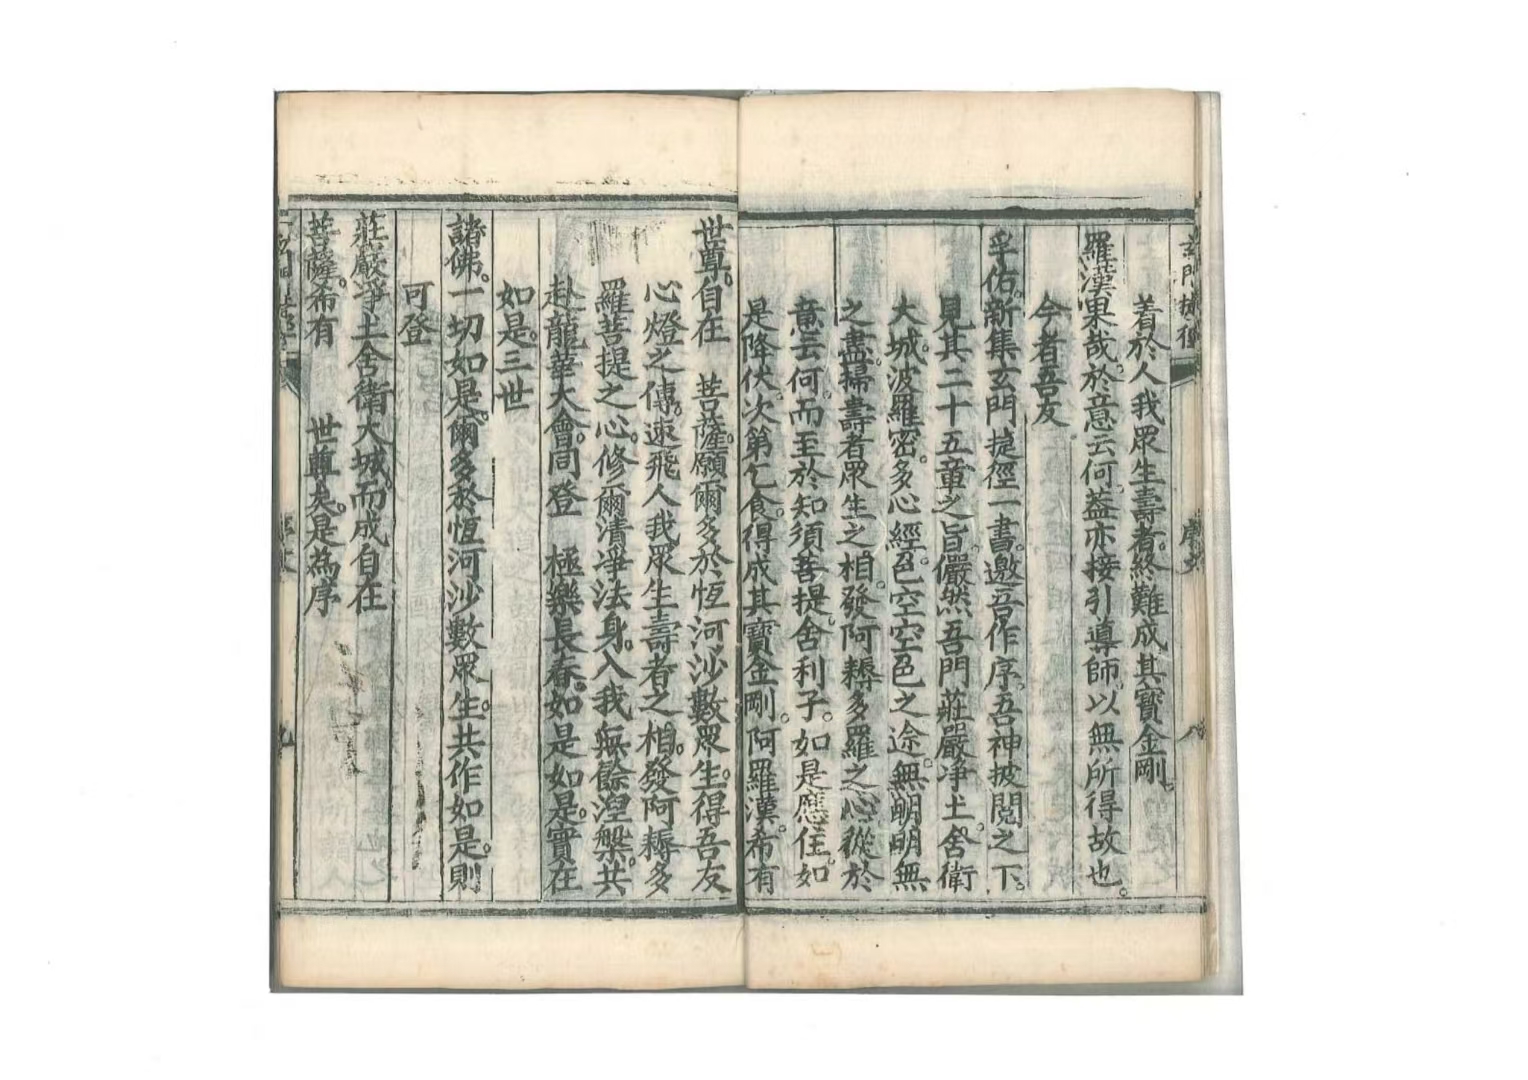 着於人我眾生壽者終難成其寶金剛。
羅漢果哉。於意云何。蓋亦接引導師。以無所得故也。
今者吾友
孚佑。新集玄門捷徑一書。邀吾作序。吾神披閱之下。
見其二十五章之旨。儼然吾門莊嚴淨土。舍衛
大城。波羅密。多心經。色空空色之途。無明明無
之盡。掃壽者眾生之相。發阿耨多羅之心。從於
意云何。而至於知須菩提。舍利子。如是應住。如
是降伏。次第乞食。得成其寶金剛。阿羅漢。希有
世尊。自在　菩薩。願爾多於恆河沙數眾生。得吾友
心燈之傳。速飛人我眾生壽者之相。發阿耨多
羅菩提之心。修爾清淨法身。入我無餘涅槃。共
赴龍華大會。同登　極樂長春。如是如是。實在
如是。三世
諸佛。一切如是。爾多於恆河沙數眾生。共作如是。則
可登
莊嚴淨土舍衛大城而成自在
菩薩。希有　世尊矣。是為序